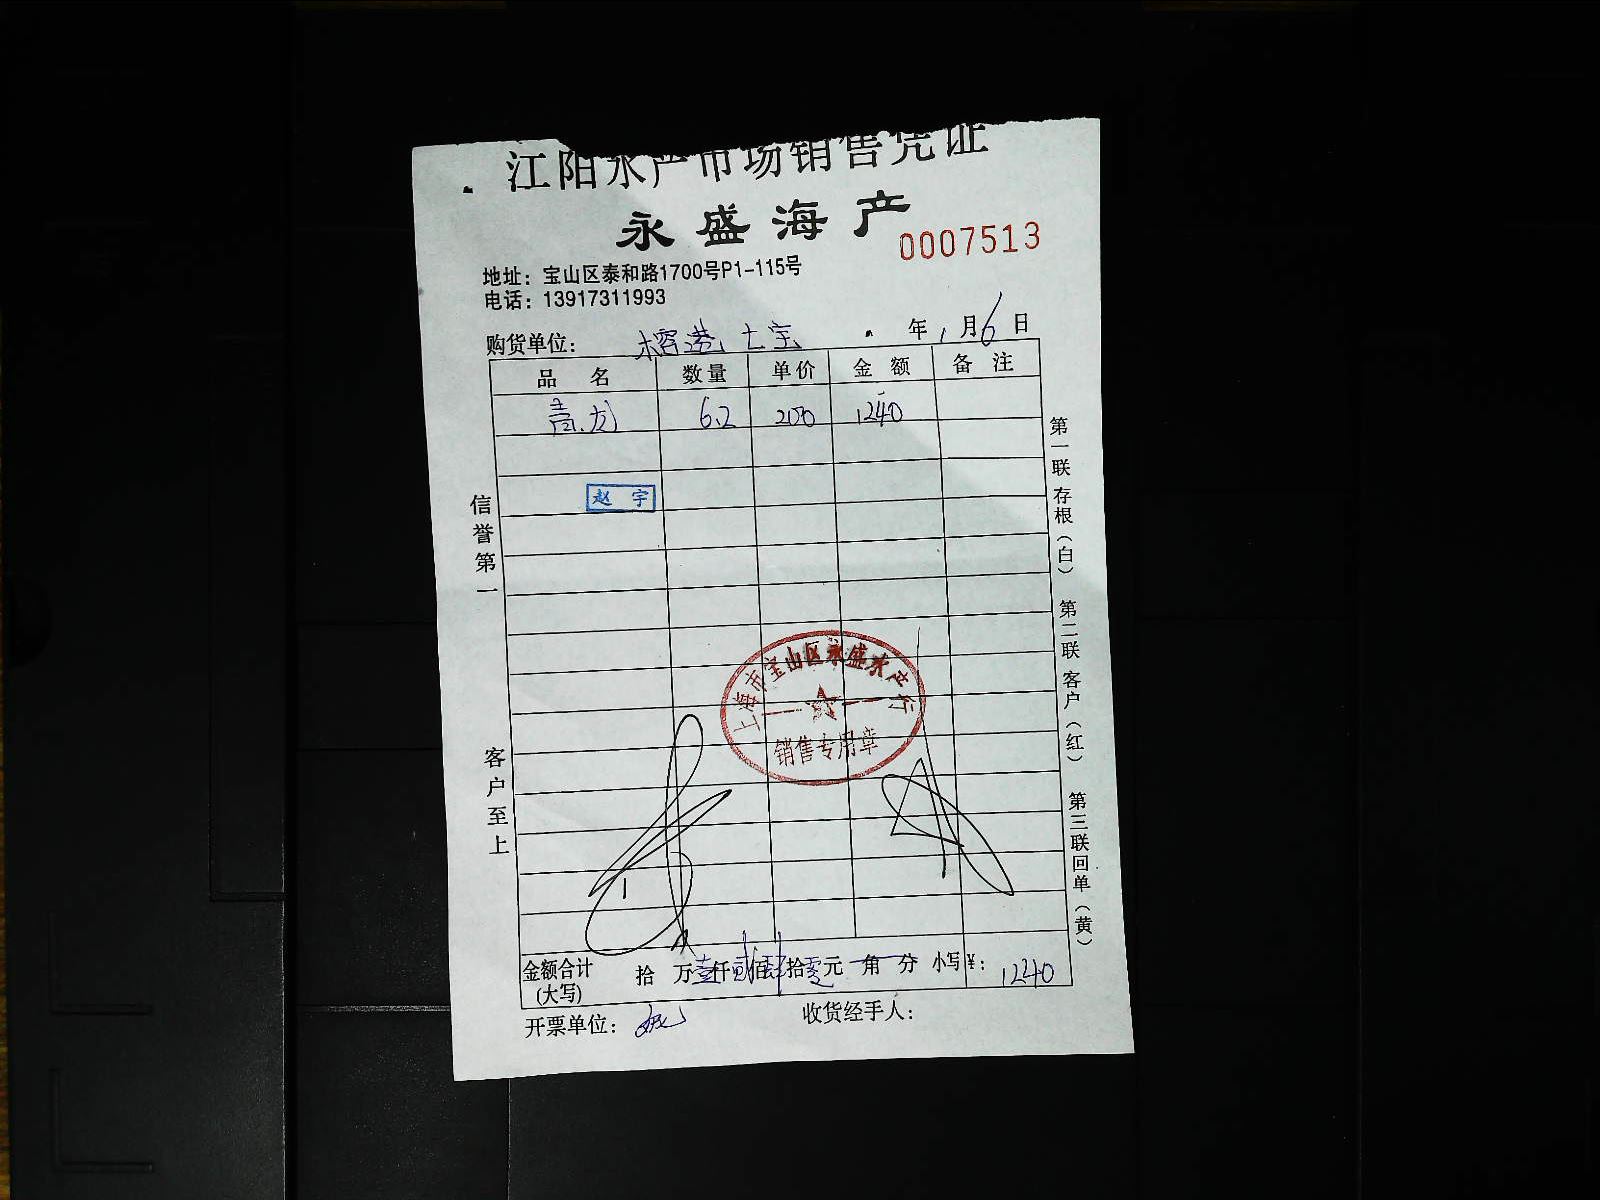 江阳水产市场销售凭证
永盛海产
0007513
地址：宝山区泰和路1700号P1-115号
电话：13917311993
购货单位：榕港 七宝 年 1 月 6 日
品名 数量 单价 金额 备注
青龙 6.2 200 1240
赵宇
信誉第一
客户至上
第一联存根（白） 第二联客户（红） 第三联回单（黄）
上海市宝山区永盛水产行
销售专用章
金额合计 拾 万 壹仟 贰佰 肆拾 零元 角 分 小写¥：1240
(大写)
开票单位： 收货经手人：